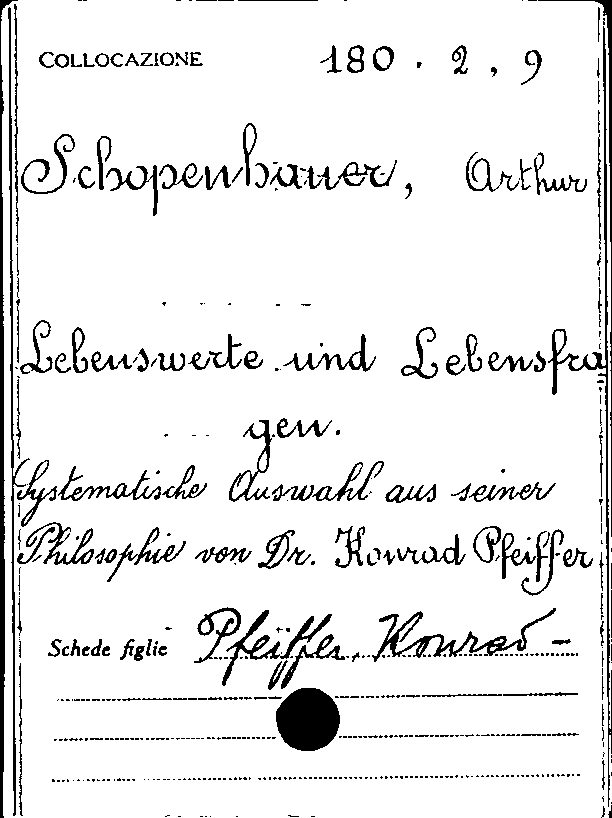 COLLOCAZIONE 180 . 2 , 9
Schopenhauer, Arthur
Lebenswerte und Lebensfra
gen.
Systematische Auswahl aus seiner
Philosophie von Dr. Konrad Pfeiffer
Schede figlie Pfeiffer, Konrad -